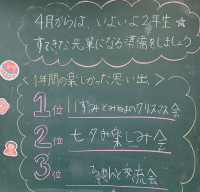 4月からは、いよいよ2年生☆
すてきな先輩になる準備をしましょう
<1年間の楽しかった思い出>
1位 クリスマス会
2位 七夕お楽しみ会
3位 交流会